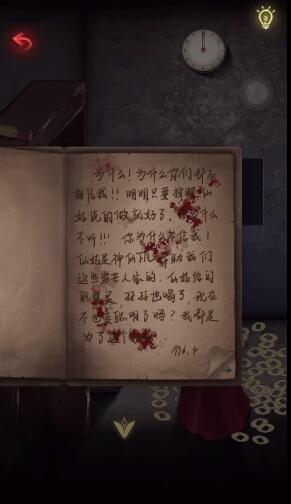 为什么！为什么你们都不
相信我！！明明只要按照仙
姑说的做就好了，为什么
不听！！！你为什么不信我！
仙姑是神仙下凡帮助我们
这些穷苦人家的，仙姑给的
圣水，好好也喝了，现在
不也变聪明了吗？我都是
为了
1996.4